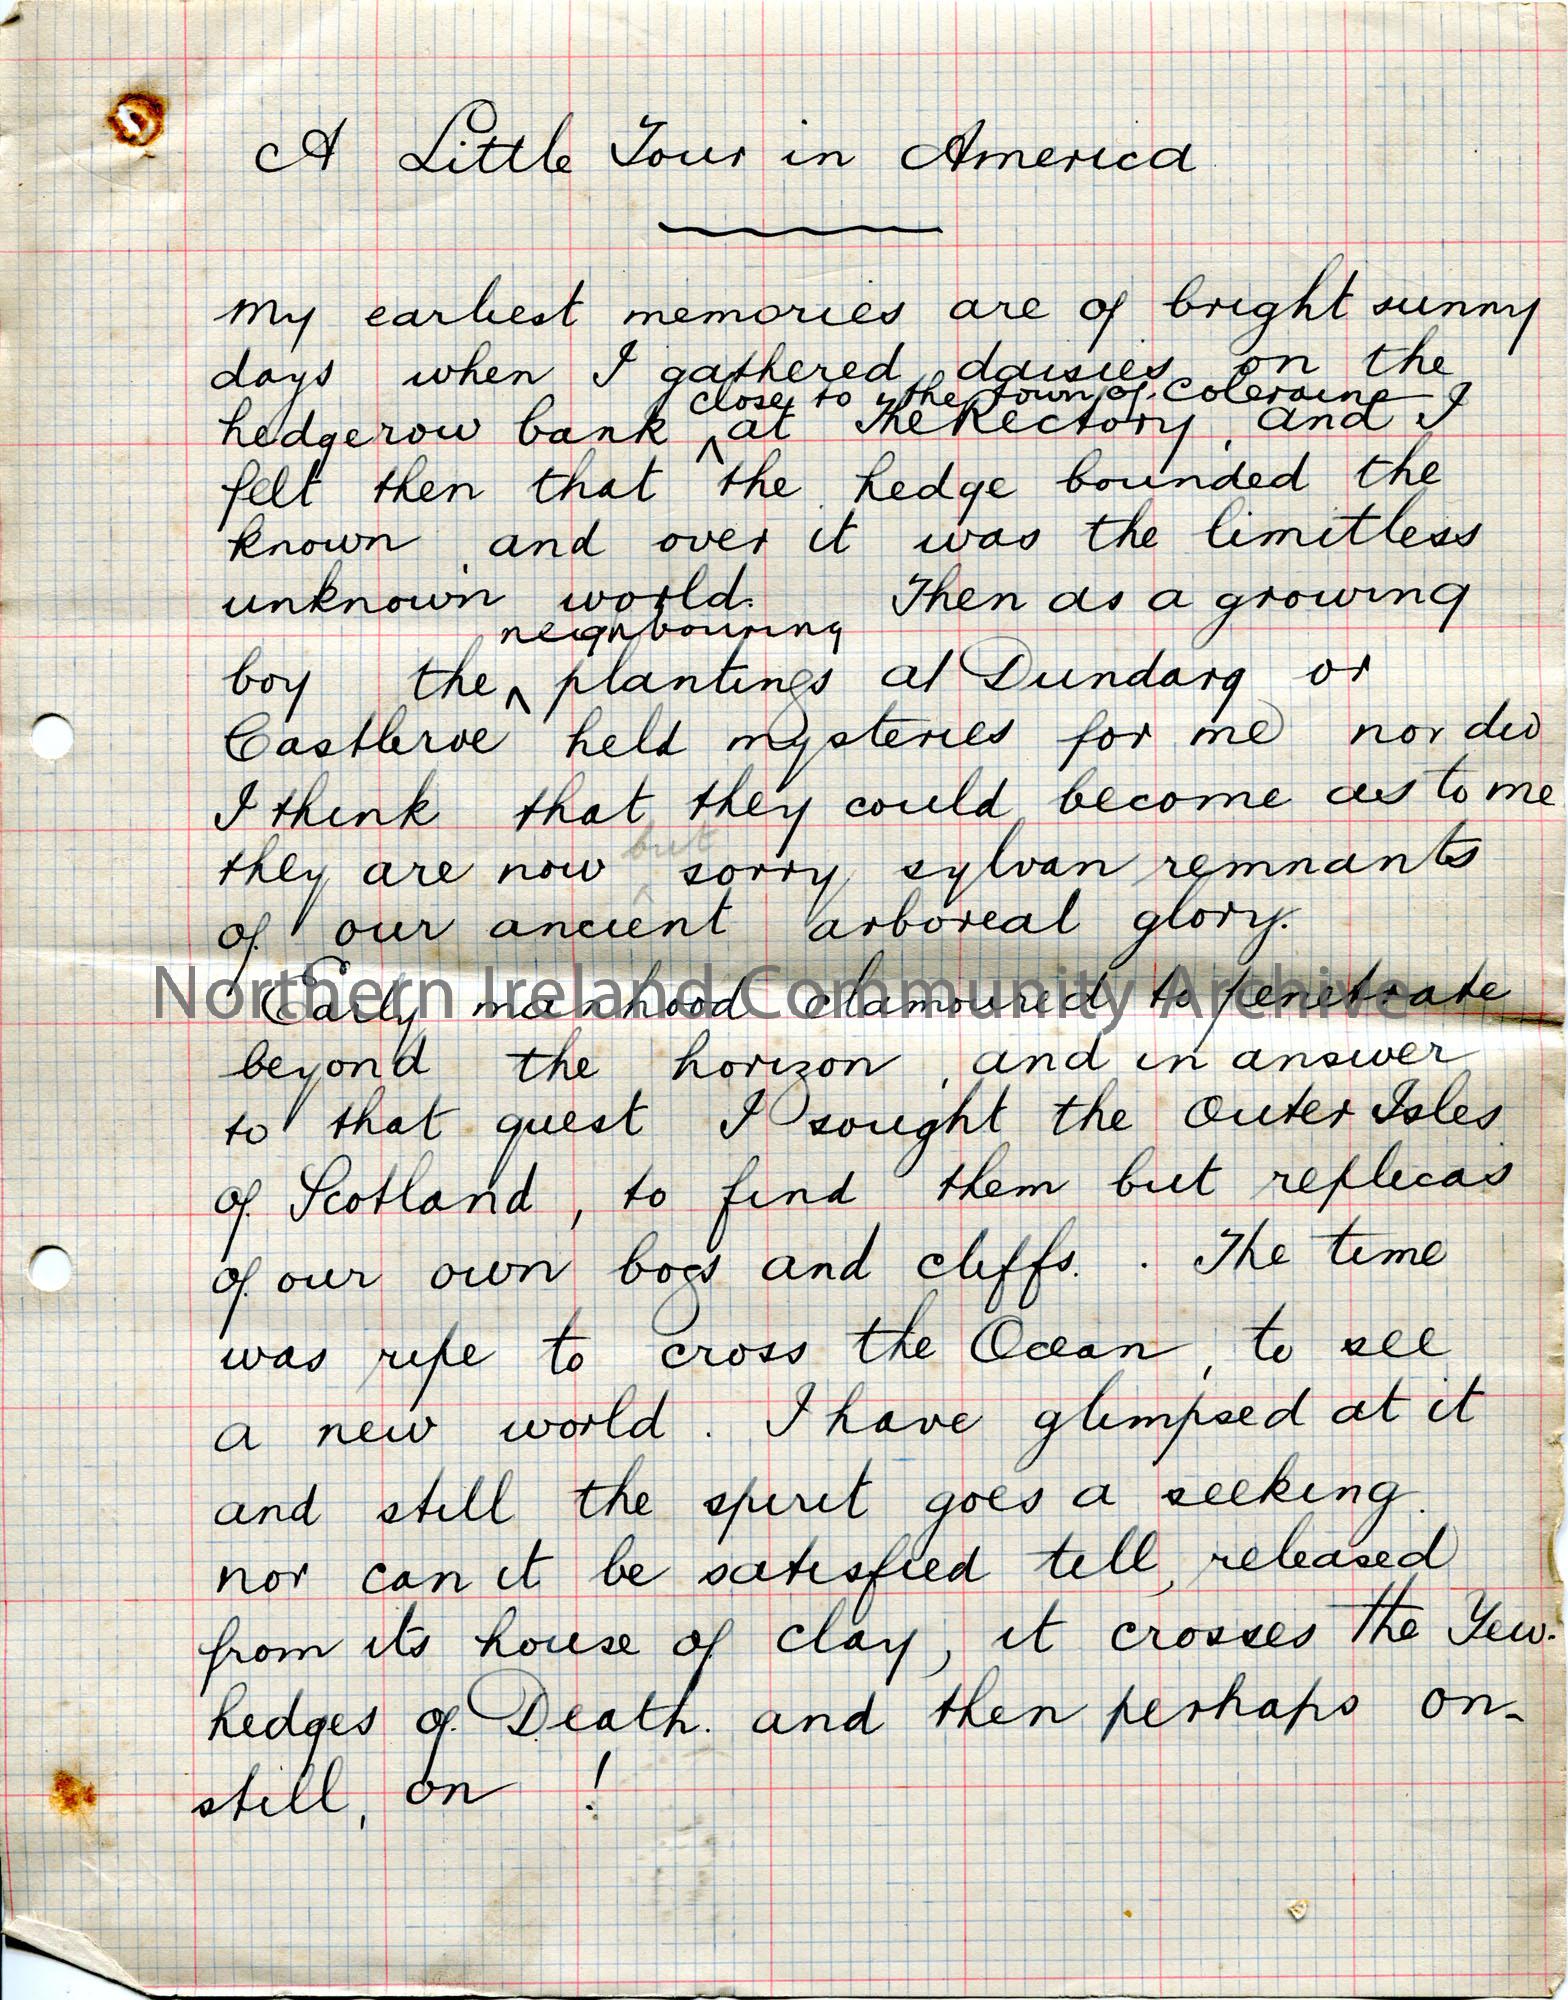 A Little Tour in America
My earliest memories are of bright sunny
days when I gathered daisies on the
close to the town of Coleraine
hedgerow bank ^ at The Rectory, and I
felt then that the hedge bounded the
known, and over it was the limitless
unknown world. Then as a growing
neighbouring
boy the ^ plantings at Dundarg or
Castleroe held mysteries for me nor did
I think that they could become as to me
but
they are now ^ sorry sylvan remnants
of our ancient arboreal glory.
Northern Ireland Community Archive
Early manhood clamoured to penetrate
beyond the horizon, and in answer
to that quest I sought the Outer Isles
of Scotland, to find them but replicas
of our own bogs and cliffs. . The time
was ripe to cross the Ocean, to see
a new world. I have glimpsed at it
and still the spirit goes a seeking.
nor can it be satisfied till, released
from its house of clay, it crosses the Yew-
hedges of Death. and then perhaps on-
still, on !